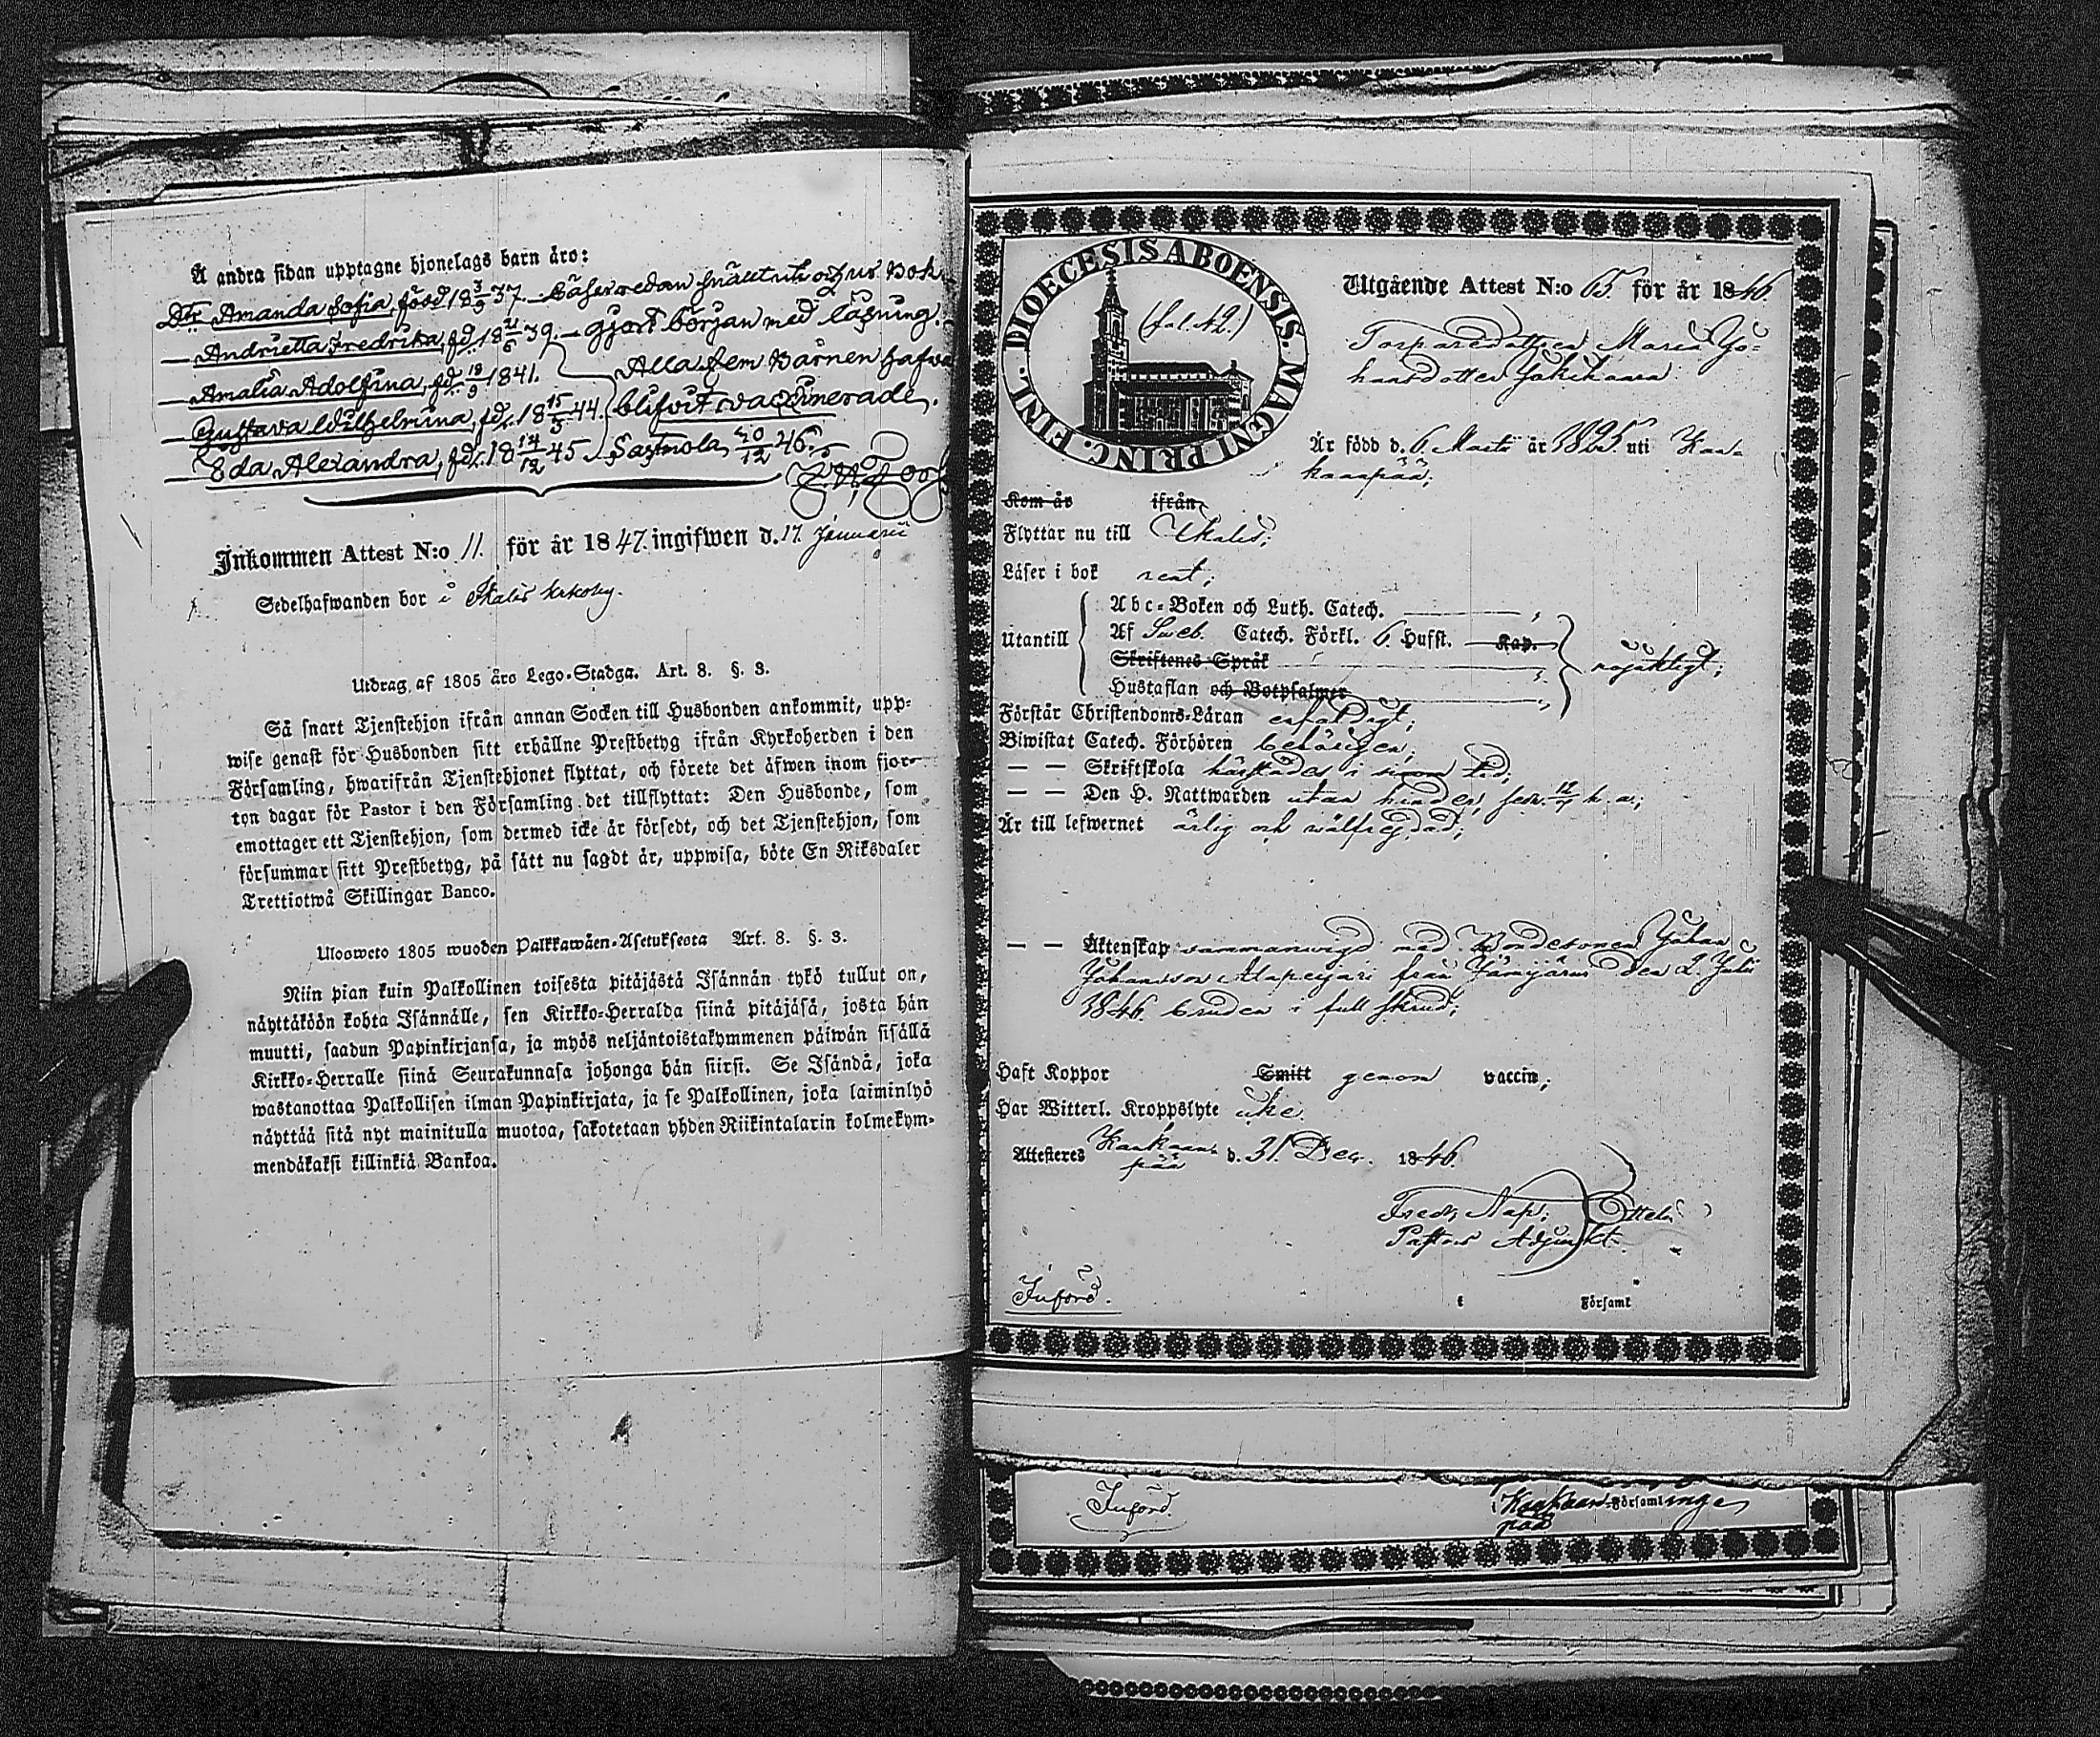 Å andra sidan upptagne hjonelags barn äro:
Dtr. Amanda Sofia, född 18 3/5 37. – Läser redan snällt uti och ur Bok
— Andrietta Fredrika, fdd. 18 21/6 39. – gjort början med läsning.
— Amalia Adolfina, fdd. 19/9 1841. Alla fem Barnen hafva
— Gustava Wilhelmina, fdd. 18 15/3 44. blifvit vaccinerade.
— Eda Alexandra, fdd. 18 14/12 45. Sastmola 30/12 46.
Inkommen Attest N:o 11. för år 1847. ingifwen d. 17. Januarii
Sedelhafwanden bor i Ikalis
Utdrag af 1805 års Lego-Stadga. Art. 8. §. 3.
Så snart Tjenstehjon ifrån annan Socken till Husbonden ankommit, upp-
wise genast för Husbonden sitt erhållne Prestbetyg ifrån Kyrkoherden i den
Församling, hwarifrån Tjenstehjonet flyttat, och förete det äfwen inom fjor-
ton dagar för Pastor i den Församling det tillflyttat: Den Husbonde, som
emottager ett Tjenstehjon, som dermed icke är försedt, och det Tjenstehjon, som
försummar sitt Prestbetyg, på sätt nu sagdt är, uppwisa, böte En Riksdaler
Trettiotwå Skillingar Banco.
Uloosweto 1805 wuoden Palkkawäen-Asetuksesta Art. 8. §. 3.
Niin pian kuin Palkollinen toisesta pitäjästä Isännän tykö tullut on,
näyttäköön kohta Isännälle, sen Kirkko-Herralda siinä pitäjäsä, josta hän
muutti, saadun Papinkirjansa, ja myös neljäntoistakymmenen päiwän sisällä
Kirkko-Herralle siinä Seurakunnasa johonga hän siirsi. Se Isändä, joka
wastanottaa Palkollisen ilman Papinkirjata, ja se Palkollinen, joka laiminlyö
näyttää sitä nyt mainitulla muotoa, sakotetaan yhden Riikintalarin kolmekym-
mendäkaksi killinkiä Bankoa.
DIOECESIS ABOENSIS. MAGNI PRINC. FINL.
(fol. 42.)
Utgående Attest N:o 65. för år 1846.
Torparedottren Maria Jo-
hansdotter Jokikaara
Är född d. 6 Martii år 1825 uti Kan-
kaanpää;
Kom år ifrån
Flyttar nu till Ikalis;
Läser i bok rent;
Utantill
Abc-Boken och Luth. Catech.
Af Sveb. Catech. Förkl. 6. Hufst. Kap.
Skriftenes Språk
Hustaflan och Botpsalmer
nöjaktigt;
Förstår Christendoms-Läran enfaldigt;
Biwistat Catech. Förhören behörigen;
— — Skriftskola i sinom tid;
— — Den H. Nattwarden utan hinder, sedn. 12/7 h. a.;
Är till lefwernet ärlig och wälfrejdad;
— — Äktenskap sammanvigd med Bondesonen Johan
Johansson från Jämijärvi den 2. Julii
1846. bruden i full skrud;
Haft Koppor Smitt genom vaccin;
Har Witterl. Kroppslyte icke.
Attesteras Kankaan-
pää d. 31 Dec. 1846.
Fredr. Nap:
Pastors Adjunkt.
Införd.
i Församl
Införd.
i Kankaan- Församlinge
pää